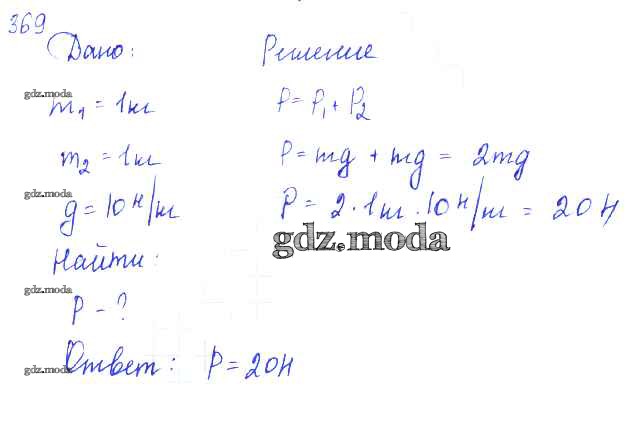 369
Дано: Решение
gdz.moda
m₁ = 1кг P = P₁ + P₂
m₂ = 1кг P = mg + mg = 2mg
gdz.moda
g = 10 Н/кг P = 2 · 1кг · 10 Н/кг = 20 Н
gdz.moda
Найти:
gdz.moda
P - ?
Ответ: P = 20Н
gdz.moda